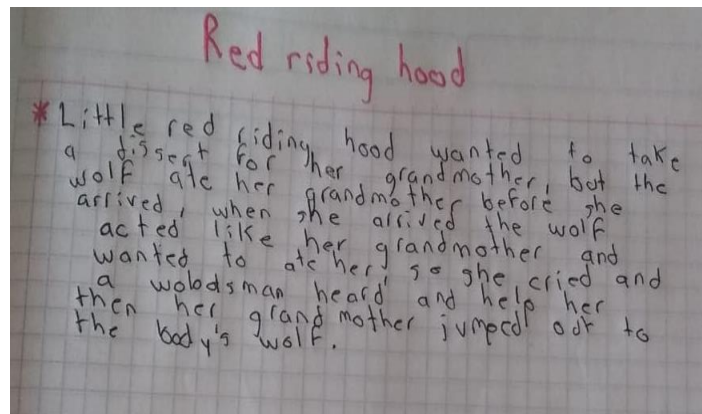 Red riding hood
* Little red riding hood wanted to take
a dissert for her grandmother, but the
wolf ate her grandmother before she
arrived, when she arrived the wolf
acted like her grandmother and
wanted to ate her, so she cried and
a wobdsman heard and help her
then her grandmother jumped out to
the body's wolf.